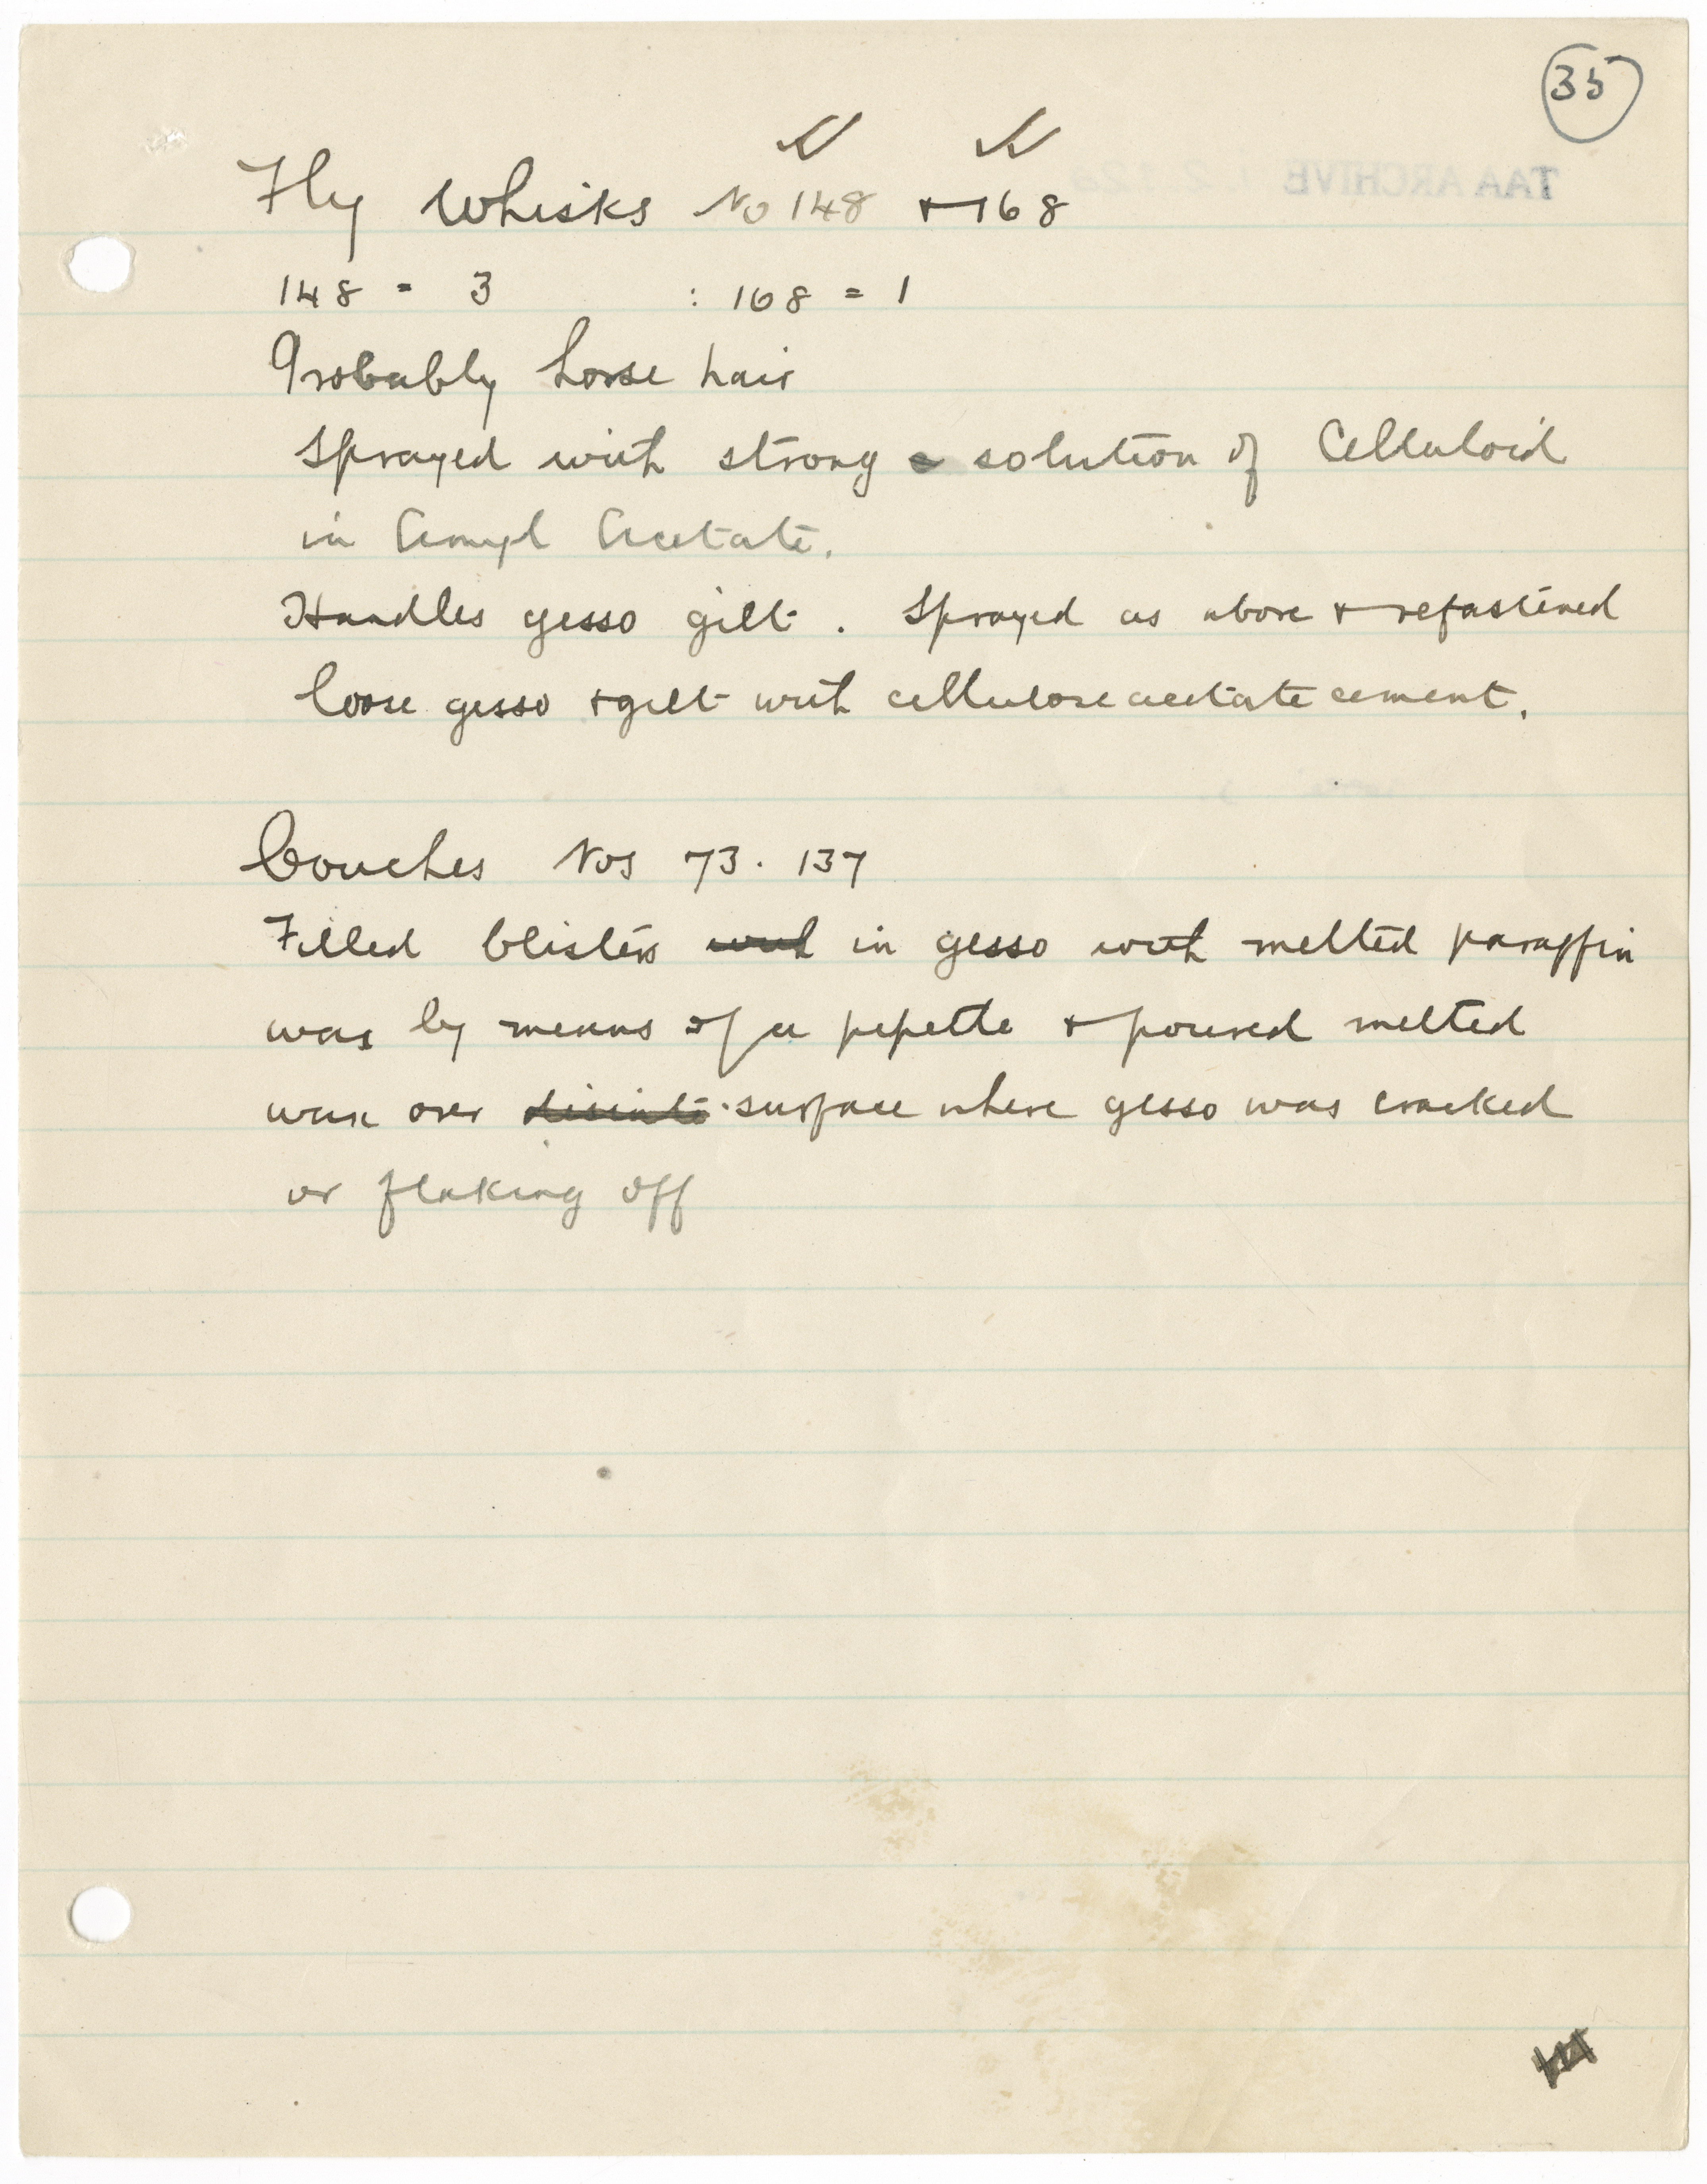 35
Fly Whisks No 148 + 168
148 = 3 : 168 = 1
Probably horse hair
Sprayed with strong solution of Celluloid
in Amyl Acetate.
Handles gesso gilt. Sprayed as above + refastened
loose gesso + gilt with cellulose acetate cement.
Couches Nos 73. 137
Filled blisters with in gesso with melted paraffin
wax by means of a pipette + poured melted
wax over surface where gesso was cracked
or flaking off